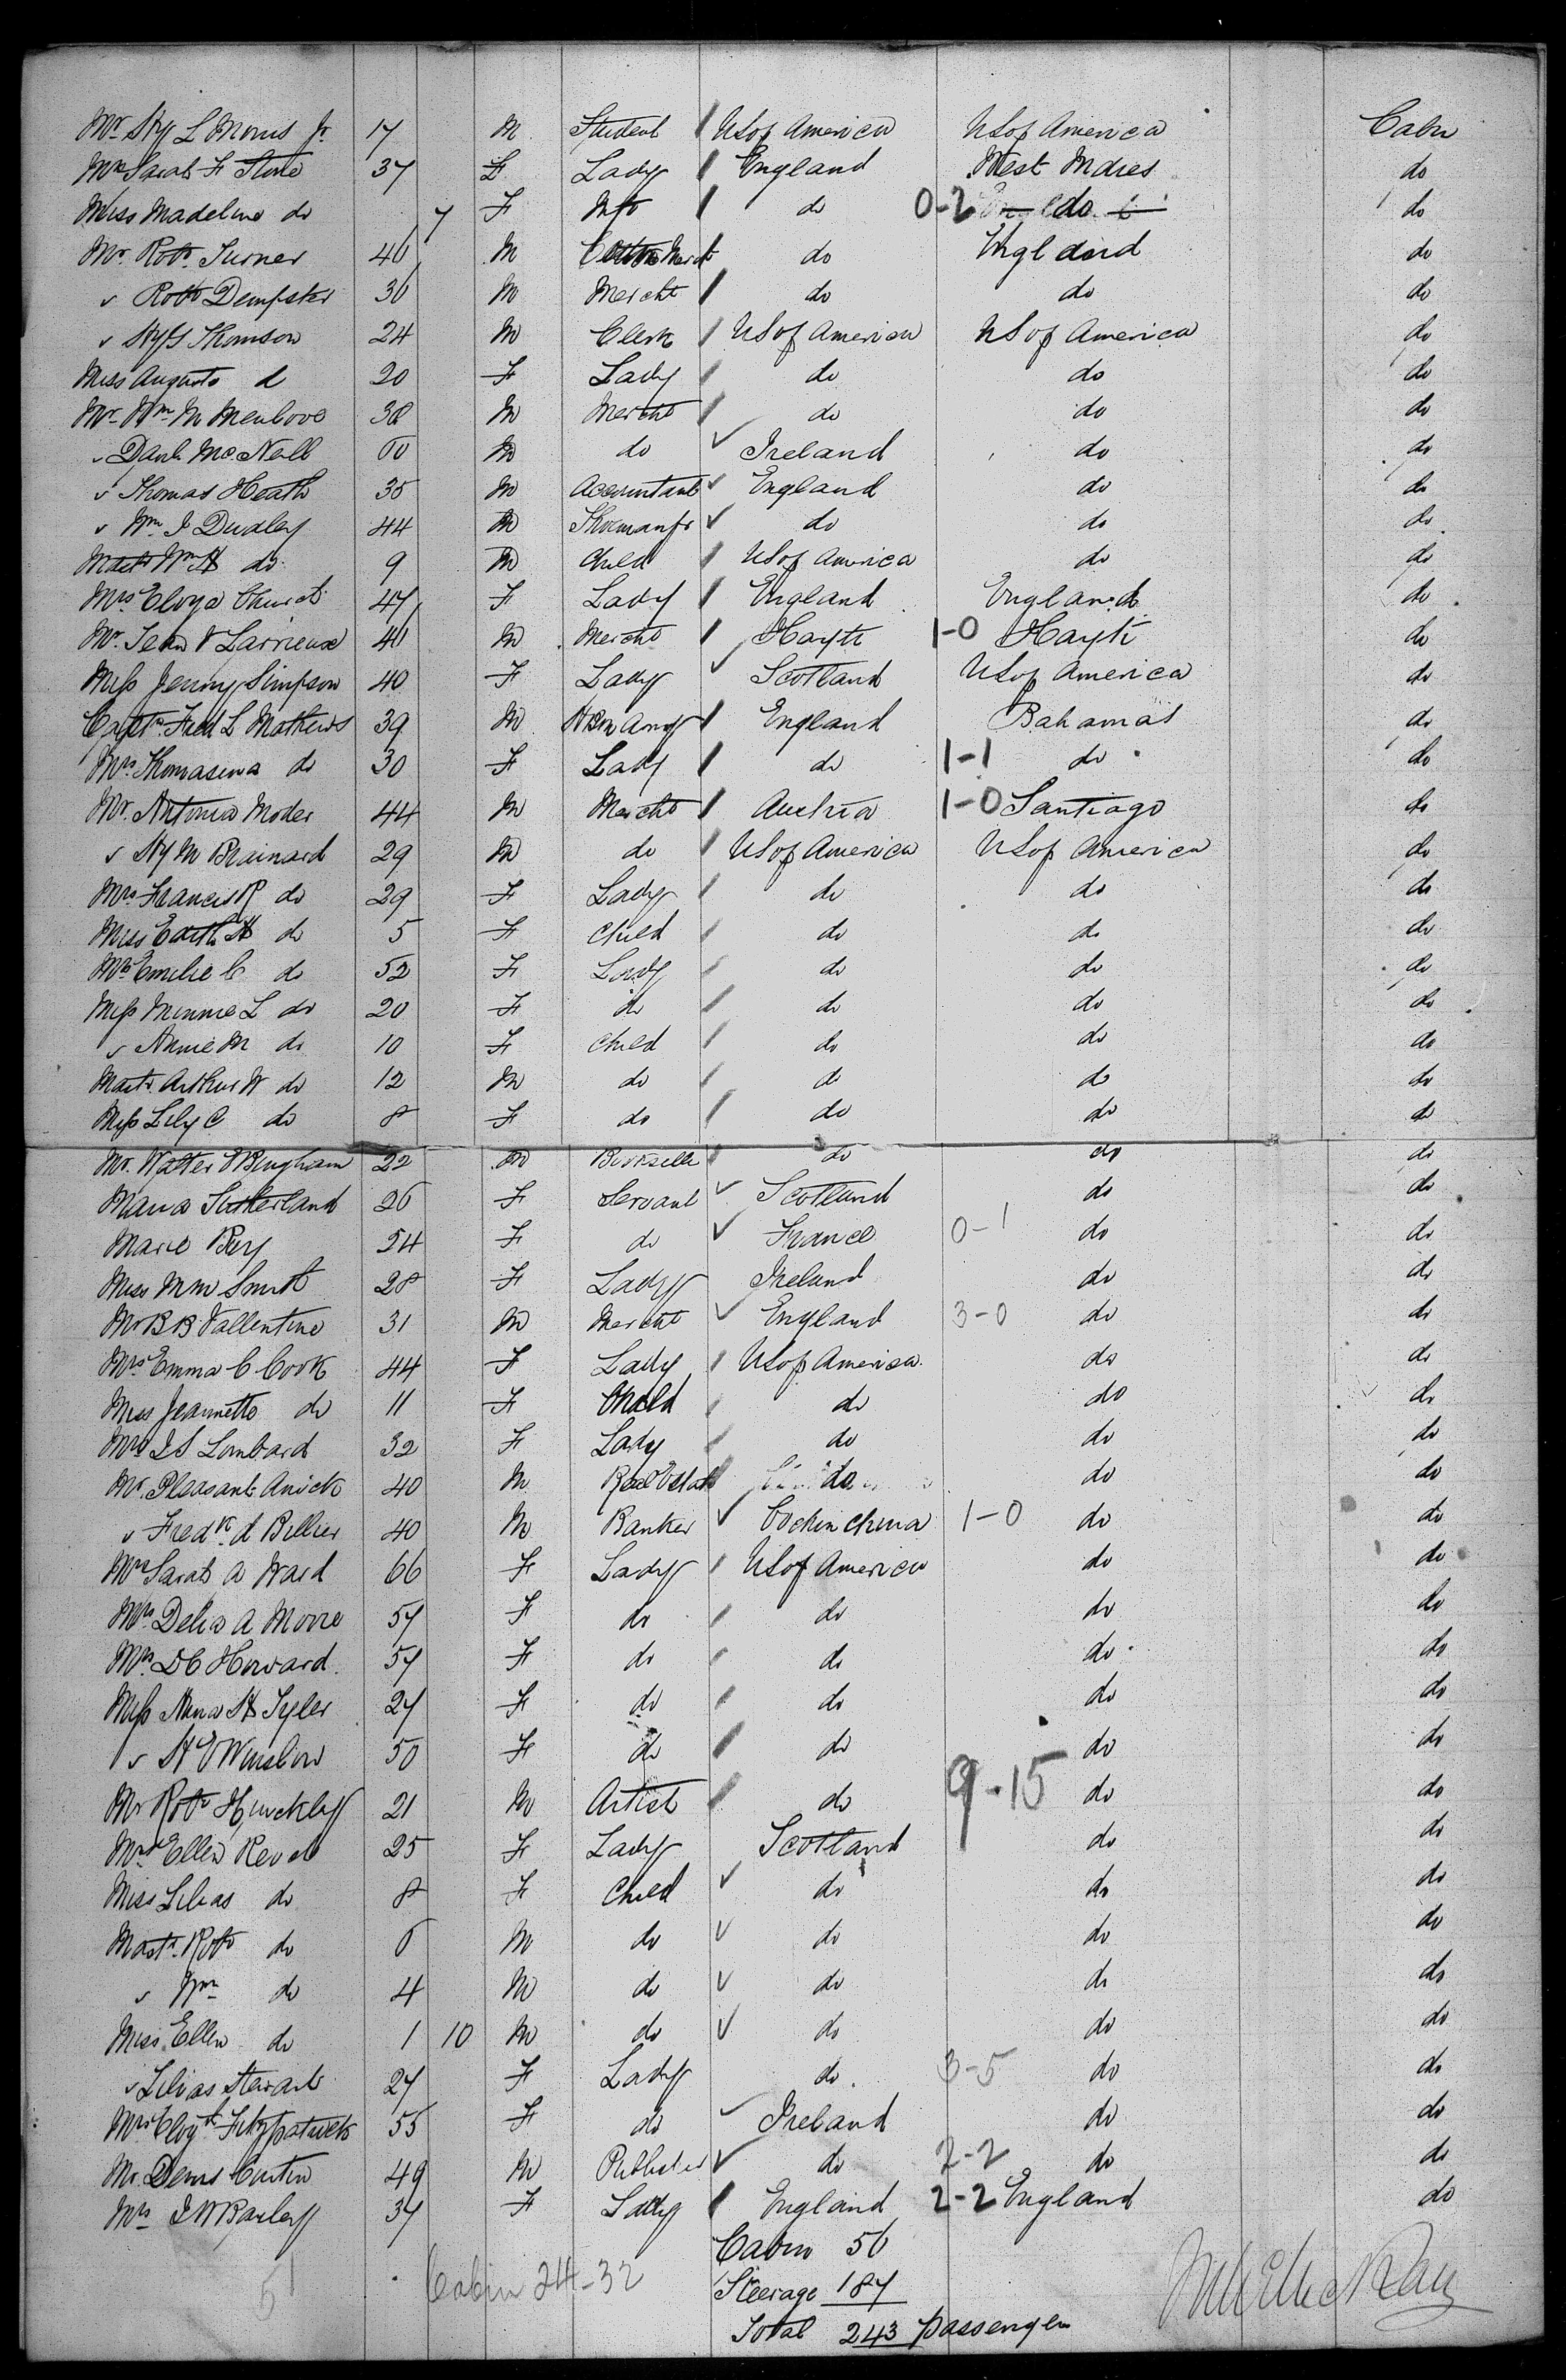 Mr Hy L Morris Jr. 17 M Student US of America US of America Cabin
Mrs Sarah F Stone 37 F Lady England West Indies do
Miss Madeline do 7 F Inft do 0-2 do do
Mr. Robt. Turner 46 M Cotton Mercht do England do
" Robt Dempster 36 M Mercht do do do
" Hy G Thomson 24 M Clerk US of America US of America do
Miss Augusta d 20 F Lady do do do
Mr. Wm. M 38 M Mercht do do do
" Danl. McNeill 60 M do Ireland do do
" Thomas Heath 35 M Accountant England do do
" Wm. J Dudley 44 M Shoemanfr do do do
Mastr Wm H do 9 M Child US of America do do
Mrs Church 47 F Lady England England do
Mr. Jean V Larrieux 46 M Mercht Hayti 1-0 Hayti do
Miss Jenny Simpson 40 F Lady Scotland US of America do
Captn. Fred L Mathews 39 M HBM Army England Bahamas do
Mrs. Thomasina do 30 F Lady do 1-1 do do
Mr. Antonia Moder 44 M Mercht Austria 1-0 Santiago do
" Hy M Brainard 29 M do US of America US of America do
Mrs Francis R do 29 F Lady do do do
Miss Edith H do 5 F Child do do do
Mrs Emilie C do 52 F Lady do do do
Miss Minnie L do 20 F do do do do
" Annie M do 10 F Child do do do
Mastr. Arthur W do 12 M do do do do
Miss Lily C do 8 F do do do do
Mr. Walter E Bingham 22 M Bookseller do do do
Maria Sutherland 26 F Servant Scotland do do
Marie Rey 24 F do France 0-1 do do
Miss M M Smith 28 F Lady Ireland do do
Mr B B Vallentine 31 M Mercht England 3-0 do do
Mrs Emma C Cook 44 F Lady US of America do do
Miss Jeannette do 11 F Child do do do
Mrs J S Lombard 32 F Lady do do do
Mr. Pleasant 40 M Real Estate do do do
" Fredk. d Billier 40 M Banker Cochin china 1-0 do do
Mrs Sarah A Ward 66 F Lady US of America do do
Mrs. Delia A Moore 57 F do do do do
Mrs. D C Howard 57 F do do do do
Miss Anna H Tyler 27 F do do do do
" H E Winslow 50 F do do do do
Mr Robt Hinckley 21 M Artist do 9-15 do do
Mrs Ellen 25 F Lady Scotland do do
Miss Lilias do 8 F Child do do do
Mastr. Robt do 6 M do do do do
" Wm do 4 M do do do do
Miss Ellen do 1 10 M do do do do
" Lilias Stewart 27 F Lady do 3-5 do do
Mrs Fitzpatrick 55 F do Ireland do do
Mr. Denis Curtin 49 M Publisher do 2-2 do do
Mrs J W Barley 34 F Lady England 2-2 England do
Cabin 56
51 Cabin 24-32
Steerage 187
Total 243 passengers